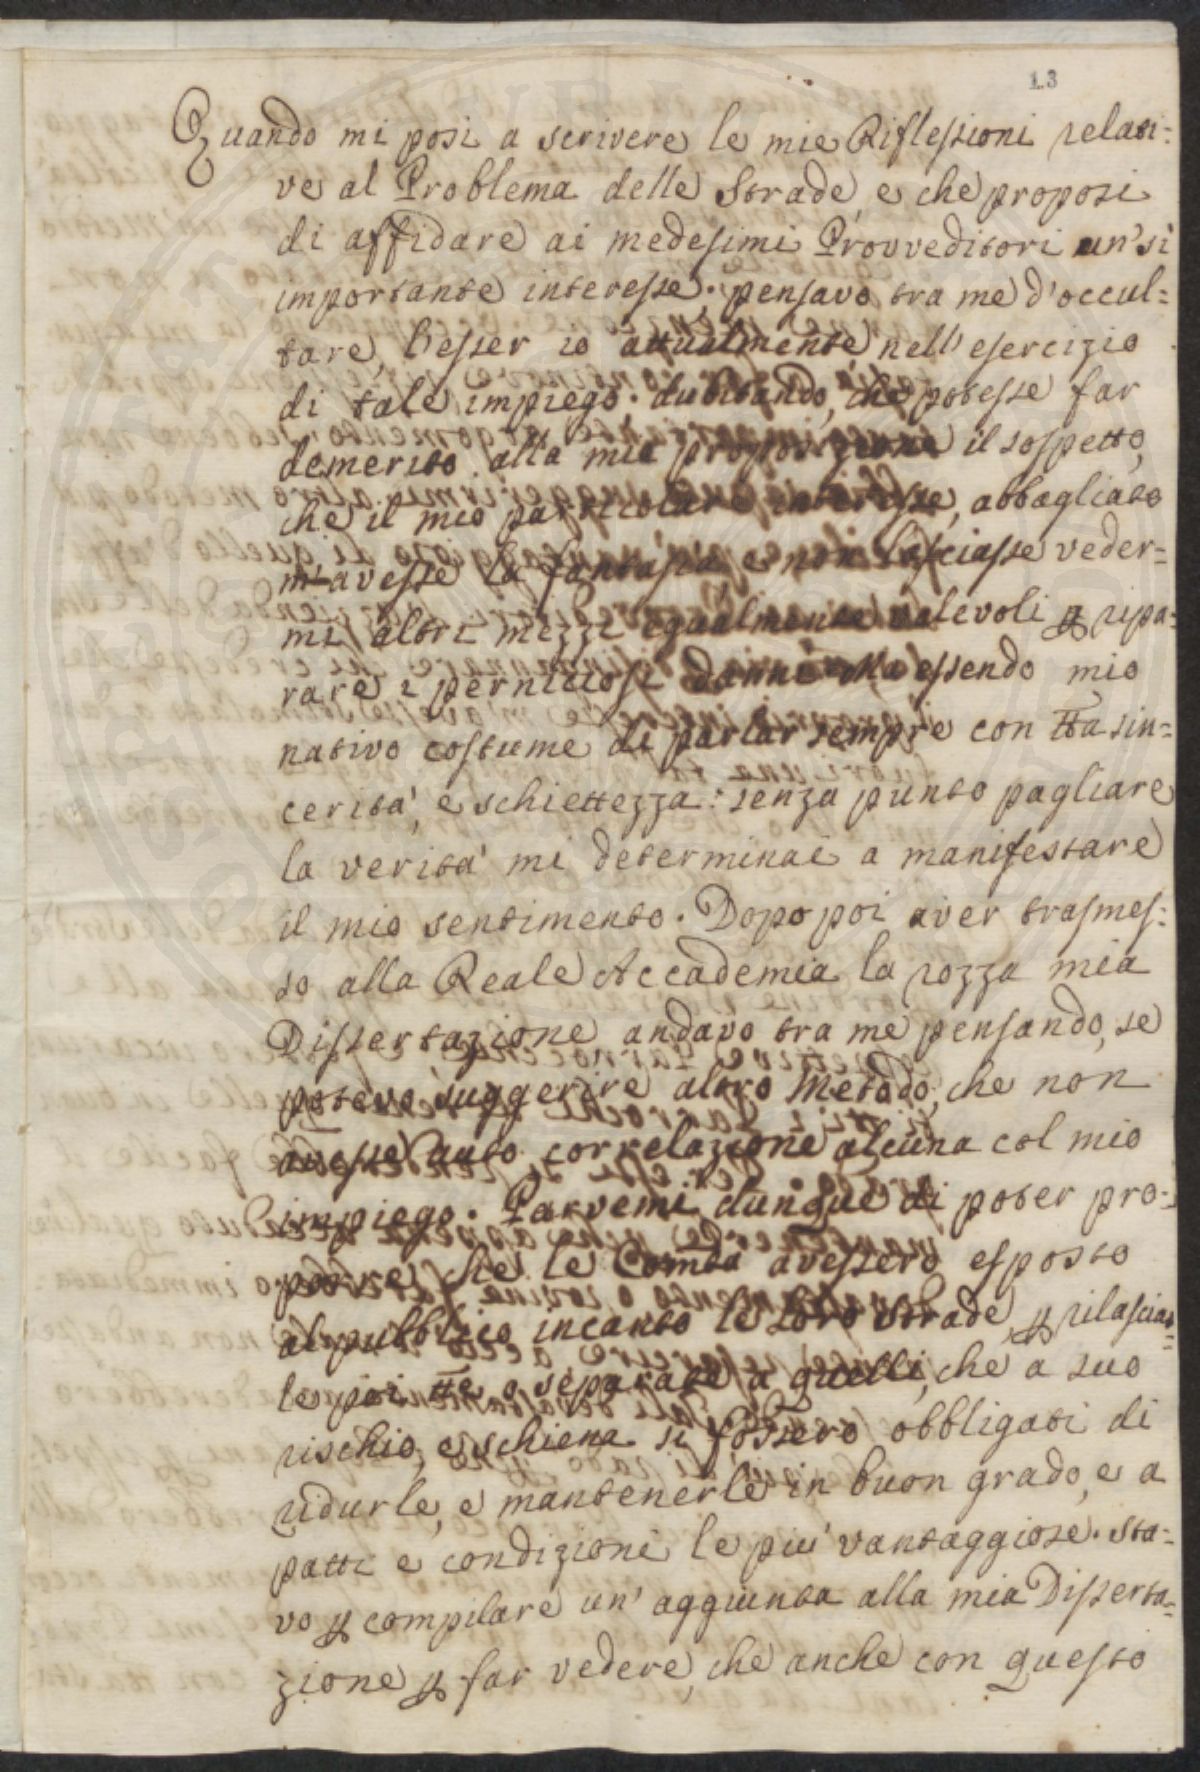 13
Quando mi posi a scrivere le mie Riflessioni relati=
ve al Problema delle Strade, e che proposi
di affidare ai medesimi Provveditori un'si
importante interesse; pensavo tra me d'occul=
tare, l'esser io attualmente nell'esercizio
di tale impiego; dubitando, che potesse far
demerito alla mia proposizione il sospetto,
che il mio particolare interesse, abbagliato
m'avesse la fantasia e non lasciasse veder=
mi altri mezzi egualmente valevoli p ripa=
rare i perniciosi danni. Ma essendo mio
nativo costume di parlar sempre con tta sin=
cerità, e schiettezza: senza punto pagliare
la verità mi determinai a manifestare
il mio sentimento. Dopo poi aver trasmes=
so alla Reale Accademia la rozza mia
Dissertazione andavo tra me pensando, se
potevo suggerire altro Metodo, che non
avesse auto correlazione alcuna col mio
impiego. Parvemi dunque di poter pro=
porre che le Comtà avessero esposto
al pubblico incanto le loro Strade, p rilasciar=
le poi tte o separate a quelli, che a suo
rischio, e schiena si fossero obbligati di
ridurle, e mantenerle in buon grado, e a
patti e condizioni le più vantaggiose. Sta=
vo p compilare un' aggiunta alla mia Disserta=
zione p far vedere, che anche con questo